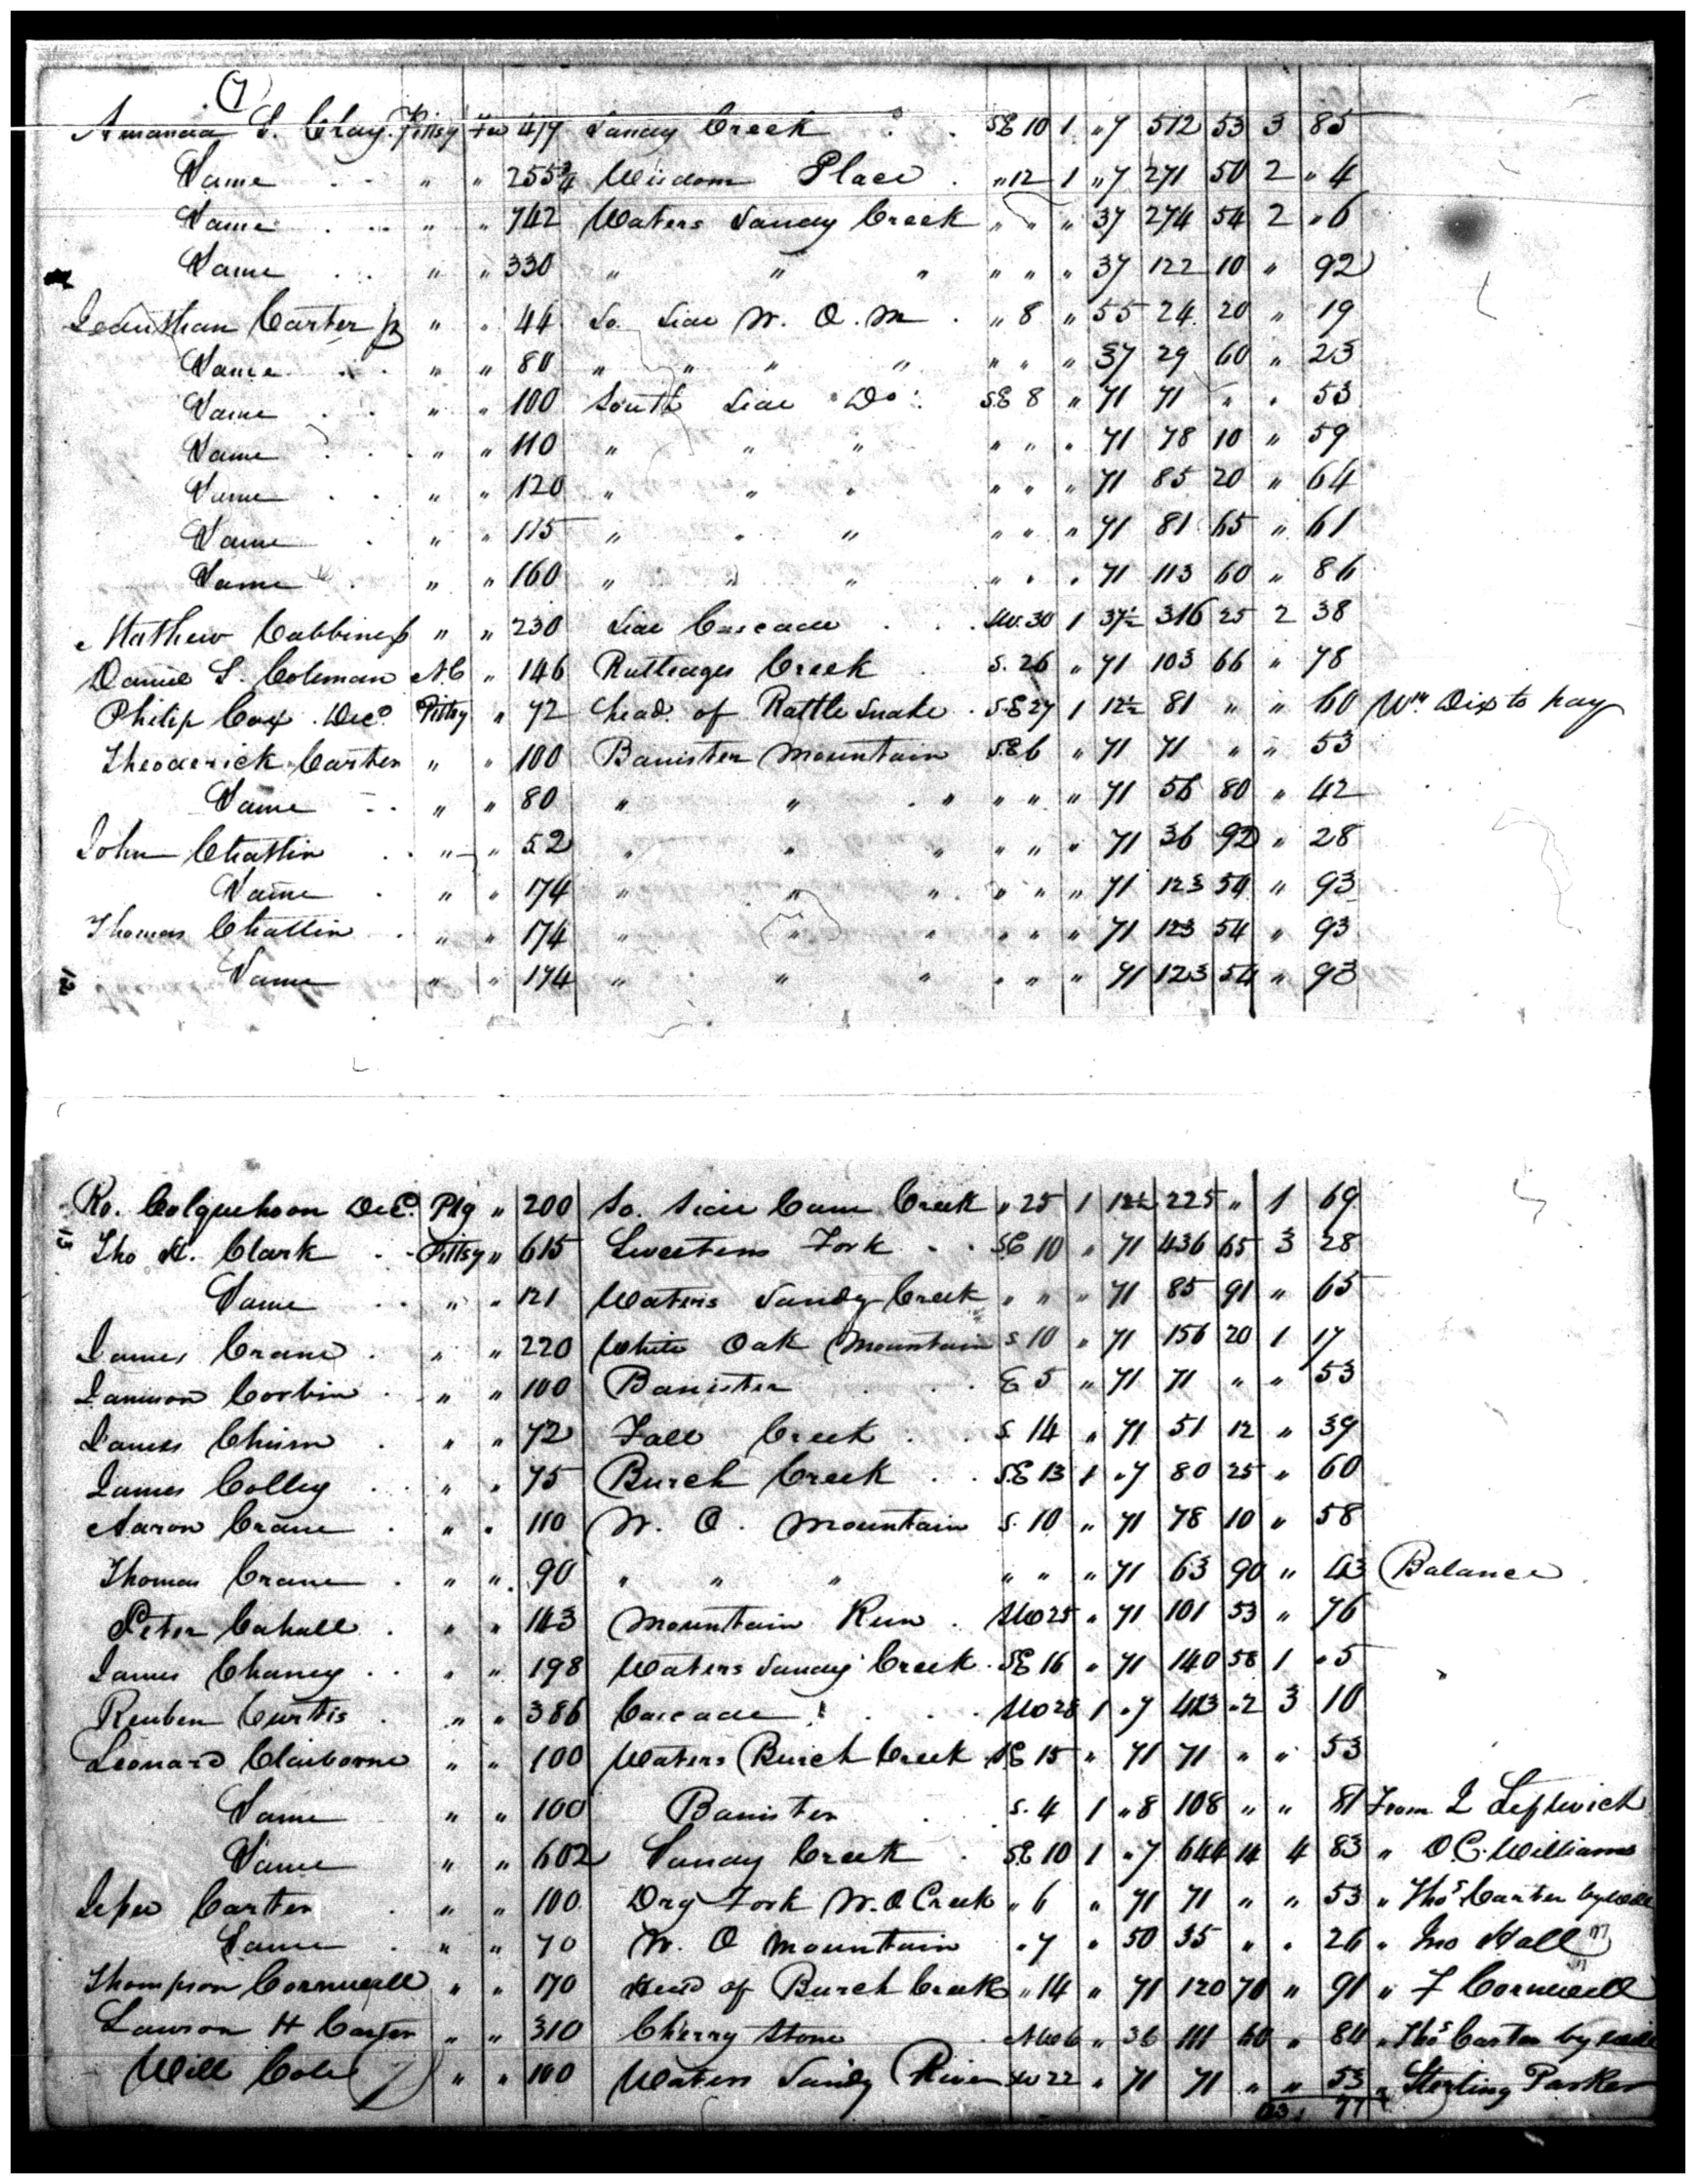 (7
Amanda S. Clay. Pittsy Fee 479 Sandy Creek SE 10 1 "7 512 53 3 85
Same " " 255 3/4 Wisdom Place " 12 1 "7 271 50 2 " 4
Same " " 742 Waters Sandy Creek " " " 37 274 54 2 " 6
Same " " 330 " " " " " " 37 122 10 " 92
Carter " " 44 So. Side W. O. M " 8 " 55 24 20 " 19
Same " " 80 " " " " " " " 37 29 60 " 23
Same " " 100 South Side Do SE 8 " 71 71 " " 53
Same " " 110 " " " " " " 71 78 10 " 59
Same " " 120 " " " " " " 71 85 20 " 64
Same " " 115 " " " " " " 71 81 65 " 61
Same " " 160 " " " " " " 71 113 60 " 86
Mathew Cabbiness " " 230 Side Cascade SW. 30 1 37½ 316 25 2 38
Daniel S. Coleman N.C " 146 Rutledges Creek S. 26 " 71 103 66 " 78
Philip Cox Decd. Pittsy " 72 head of Rattle Snake S.E 27 1 12½ 81 " " 60 Wm. Dix to pay
Theoderick Carter " " 100 Banister Mountain S.E 6 " 71 71 " " 53
Same " " 80 " " " " " " 71 56 80 " 42
John Chattin " " 52 " " " " " " 71 36 92 " 28
Same " " 174 " " " " " " 71 123 54 " 93
Thomas Chattin " " 174 " " " " " " 71 123 54 " 93
12 Same " " 174 " " " " " " 71 123 54 " 93
Ro. Colquehoon Decd. Pttg " 200 So. Side Cane Creek " 25 1 12½ 225 " 1 69
13 Tho H. Clark Pittsy " 615 Sweetens Fork SE 10 " 71 436 65 3 28
Same " " 121 Waters Sandy Creek " " " 71 85 91 " 65
James Crane " " 220 White Oak Mountain S 10 " 71 156 20 1 17
Jamison Corbin " " 100 Banister E 5 " 71 71 " " 53
James Chism " " 72 Fall Creek S 14 " 71 51 12 " 39
James Colley " " 75 Burch Creek S.E 13 1 "7 80 25 " 60
Aaron Crane " " 110 W. O. Mountain S. 10 " 71 78 10 " 58
Thomas Crane " " 90 " " " " " " 71 63 90 " 43 Balance
Peter Cahall " " 143 Mountain Run SW 25 " 71 101 53 " 76
James Chaney " " 198 Waters Sandy Creek SE 16 " 71 140 58 1 " 5
Reuben Curtis " " 386 Cascade SW 28 1 "7 413 "2 3 10
Leonard Claiborne " " 100 Waters Burch Creek SE 15 " 71 71 " " 53
Same " " 100 Banister S. 4 1 "8 108 " " 81 From J Leftwich
Same " " 602 Sandy Creek SE 10 1 "7 644 14 4 83 " D. C. Williams
Jesse Carter " " 100 Dry Fork W. O Creek " 6 " 71 71 " " 53 " Thos. Carter by will
Same " " 70 W. O Mountain " 7 " 50 35 " " 26 " Jno Hall
Thompson Cornwell " " 170 Head of Burch Creek " 14 " 71 120 70 " 91 " F Cornwell
Lawson H Carter " " 310 Cherry Stone NW 6 " 36 111 60 " 84 " Thos. Carter by will
Will Cole " " 100 Waters Sandy River SW 22 " 71 71 " " 53 " Sterling Parker
77